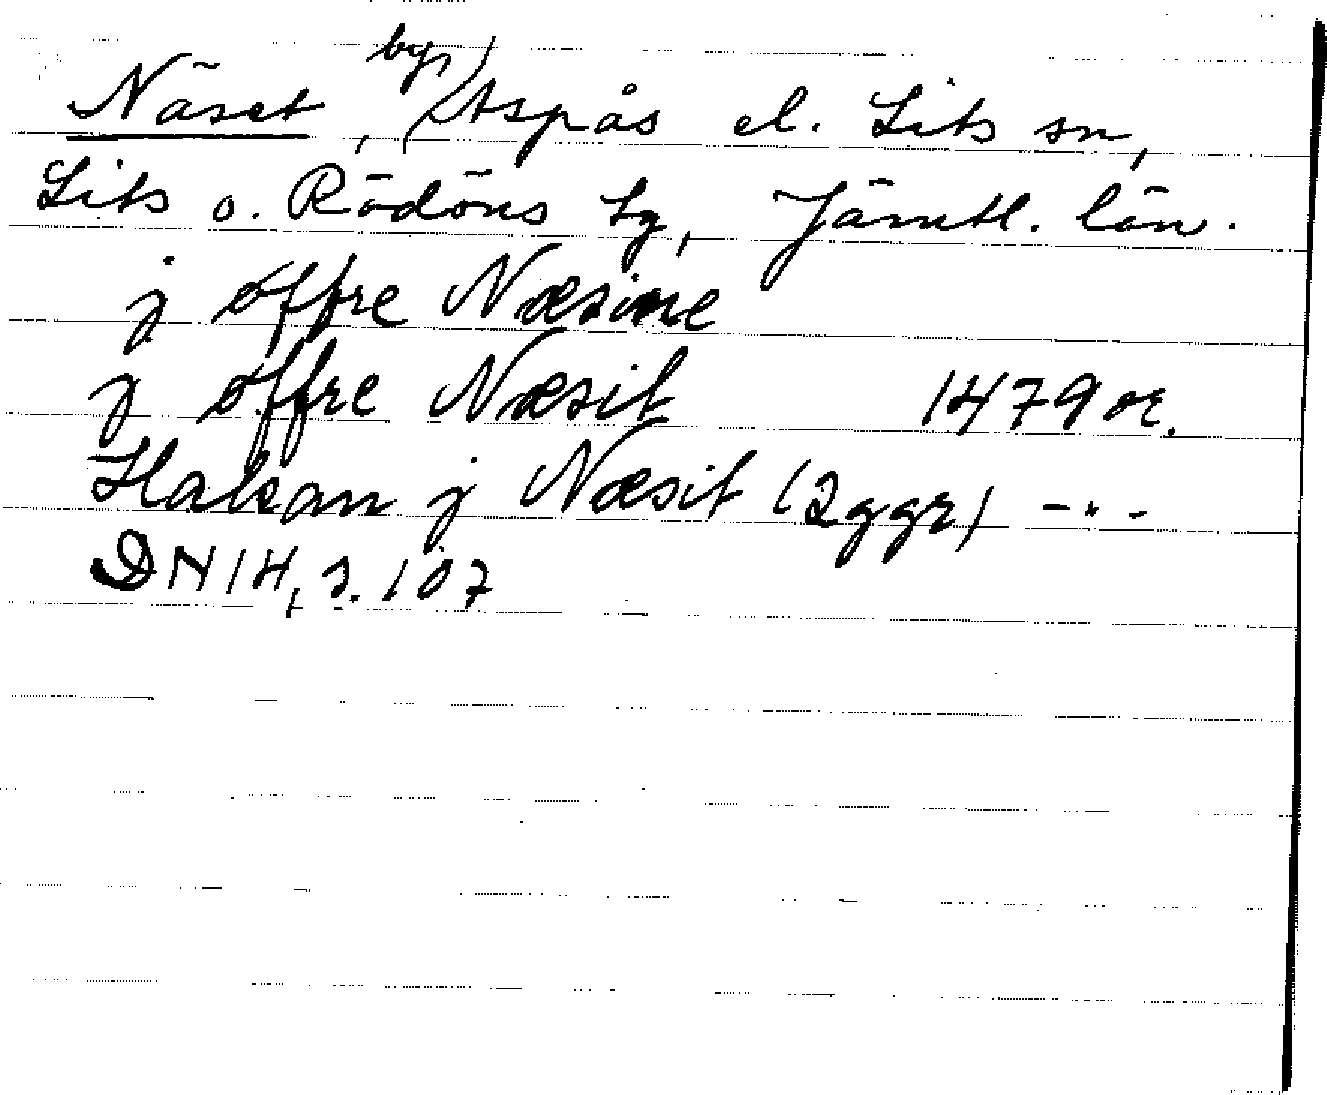 Näset, by, (Aspås el. Lits sn,
Lits o. Rödöns tg, Jämtl. län.
j öffre Næsine
j öffre Næsit 1479 or.
Hakan j Næsit (2ggr) -"-
DN 14, s. 107